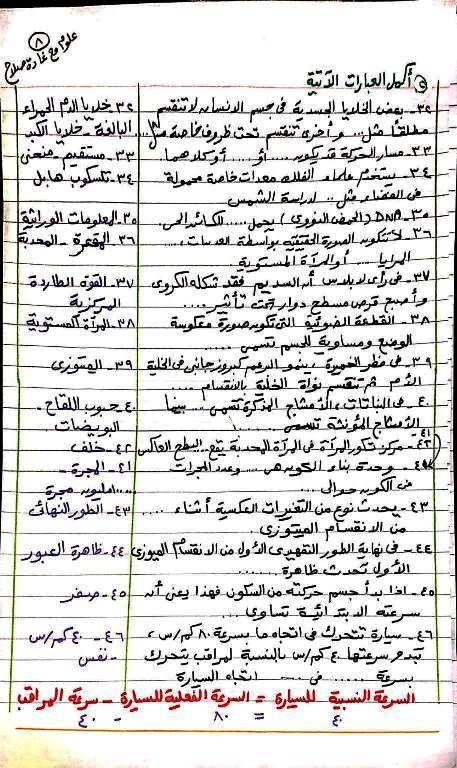 ٨
علوم مع غادة صلاح
أكمل العبارات الآتية
٣٢- بعض الخلايا الجسدية فى جسم الانسان لا تنقسم
مطلقاً مثل... وأخرى تنقسم تحت ظروف خاصة مثل...
٣٢- خلايا الدم الحمراء
البالغة - خلايا الكبد
٣٣- مسار الحركة قد يكون... أو... أو كلاهما.
٣٣- مستقيم - منحنى
٣٤- يستخدم علماء الفلك معدات خاصة محمولة
فى الفضاء مثل... لدراسة الشمس
٣٤- تلسكوب هابل
٣٥- DNA (الحمض النووى) يحمل... للكائن الحى.
٣٥- المعلومات الوراثية
٣٦- لا تتكون الصورة الحقيقية بواسطة العدسات...
المرايا... أو المرآة المستوية
٣٦- المقعرة - المحدبة
٣٧- فى رأى لابلاس أن السديم فقد شكله الكروى
وأصبع قرص مسطح دوار تحت تأثير...
٣٧- القوة الطاردة
المركزية
٣٨- القطعة الضوئية التى تكون صورة معكوسة
الوضع ومساوية للجسم تسمى...
٣٨- المرآة المستوية
٣٩- فى فطر الخميرة، ينمو البرعم كبروز جانبى فى الخلية
الأم ثم تنقسم نواة الخلية بالانقسام...
٣٩- الميتوزى
٤٠- فى النباتات، الأمشاج المذكرة تسمى... بينما
الأمشاج المؤنثة تسمى...
٤٠- حبوب اللقاح -
البويضات
٤٢- مركز تكور المرآة فى المرآة المحدبة يقع... السطح العاكس
٤٢- خلف
٤١
وحدة بناء الكون هى... وعدد المجرات
فى الكون حوالى...
٤١- المجرة -
مليون مجرة
٤٣- يحدث نوع من التغيرات العكسية أثناء...
من الانقسام الميتوزى.
٤٣- الطور النهائى
٤٤- فى نهاية الطور التمهيدى الأول من الانقسام الميوزى
الأول تحدث ظاهرة...
٤٤- ظاهرة العبور
٤٥- اذا بدأ جسم حركته من السكون فهذا يعنى أن
سرعته الابتدائية تساوى...
٤٥- صفر
٤٦- سيارة تتحرك فى اتجاه ما بسرعة ٨٠ كم/س،
تبدو سرعتها ٤٠ كم/س بالنسبة لمراقب يتحرك
بسرعة... فى... اتجاه السيارة
٤٦- ٤٠ كم/س
- نفس
السرعة النسبية للسيارة = السرعة الفعلية للسيارة - سرعة المراقب
٤٠ = ٨٠ - ٤٠